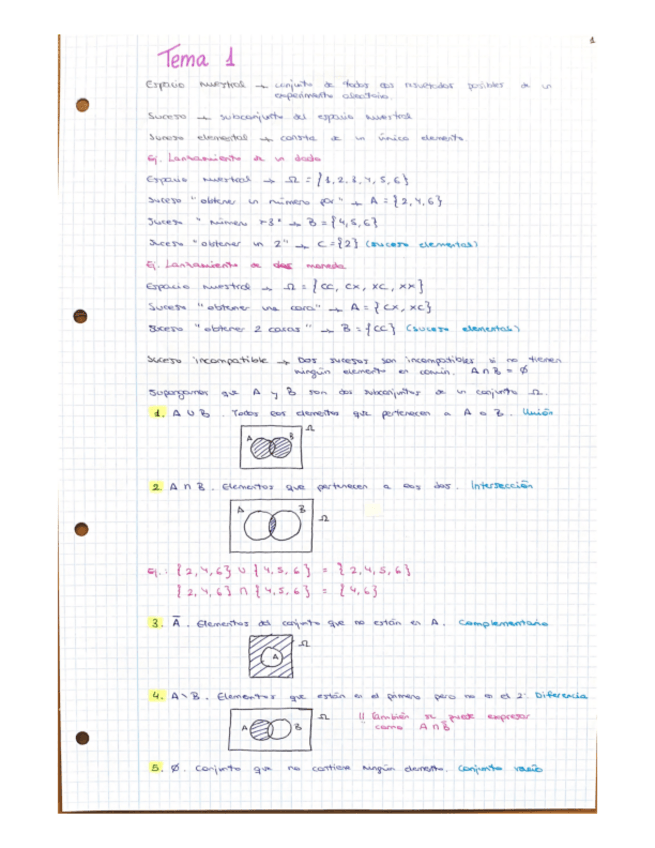 1
Tema 1
Espacio muestral → conjunto de todos los resultados posibles de un
experimento aleatorio.
Suceso → subconjunto del espacio muestral
Suceso elemental → consta de un único elemento.
Ej. Lanzamiento de un dado
Espacio muestral → Ω = {1, 2, 3, 4, 5, 6}
Suceso "obtener un número par" → A = {2, 4, 6}
Suceso "número >3" → B = {4, 5, 6}
Suceso "obtener un 2" → C = {2} (suceso elemental)
Ej. Lanzamiento de dos moneda
Espacio muestral → Ω = {cc, cx, xc, xx}
Suceso "obtener una cara" → A = {cx, xc}
Suceso "obtener 2 caras" → B = {cc} (suceso elemental)
Suceso incompatible → Dos sucesos son incompatibles si no tienen
ningún elemento en común. A ∩ B = Ø
Supongamos que A y B son dos subconjuntos de un conjunto Ω.
1. A ∪ B. Todos los elementos que pertenecen a A o B. Unión
A B Ω
2. A ∩ B. Elementos que pertenecen a los dos. Intersección
A B Ω
Ej.: {2, 4, 6} ∪ {4, 5, 6} = {2, 4, 5, 6}
{2, 4, 6} ∩ {4, 5, 6} = {4, 6}
3. A̅. Elementos del conjunto que no están en A. Complementario
A Ω
4. A \ B. Elementos que están en el primero pero no en el 2º. Diferencia
A B Ω !! También se puede expresar
como A ∩ B̅
5. Ø. Conjunto que no contiene ningún elemento. Conjunto vacío